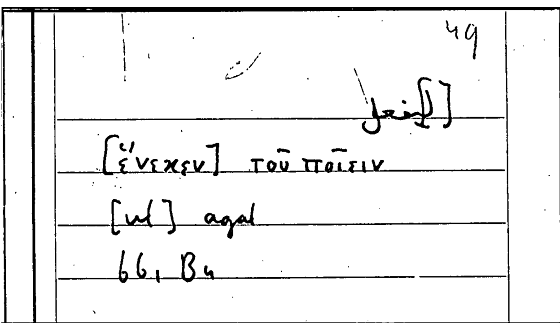 49
[ἕνεκεν] τοῦ ποῖειν
agal
66, B4